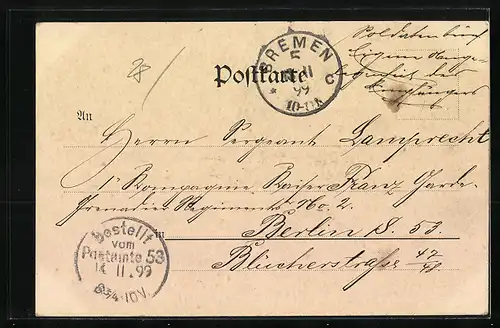 Soldatenbrief
Eigene Ange-
legenheit des
Empfängers
28
BREMEN
5
11
99
* C
10-11N
Postkarte
An
Herrn Sergeant Lamprecht
1. Kompagnie Kaiser Franz Garde-
Grenadier Regiments No. 2.
in
Berlin S. 53.
Blücherstraße 47/48
Bestellt
vom
Postamte 53
14 11. 99